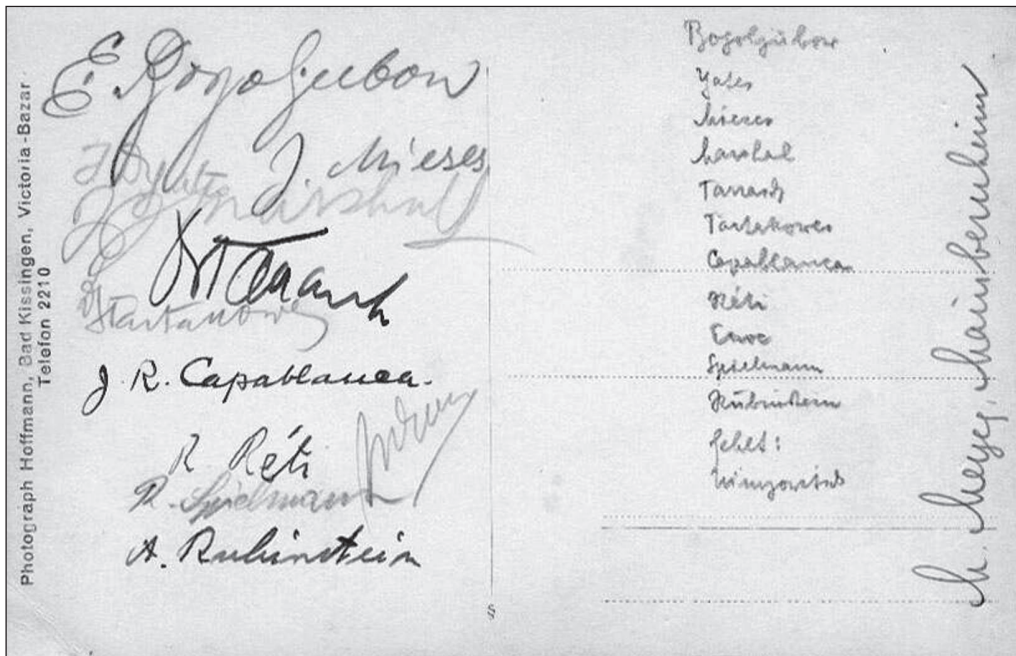 Photograph Hoffmann, Bad Kissingen, Victoria-Bazar
Telefon 2210
E. Bogoljubow
J. Mieses
Marshall
Dr Tarrasch
Tartakower
J. R. Capablanca.
R Réti
Euwe
R. Spielmann
A. Rubinstein
Bogoljubow
Yates
Mieses
Marshal
Tarrasch
Tartakower
Capablanca
Réti
Euwe
Spielmann
Rubinstein
fehlt:
M. Meyer, Mainbernheim